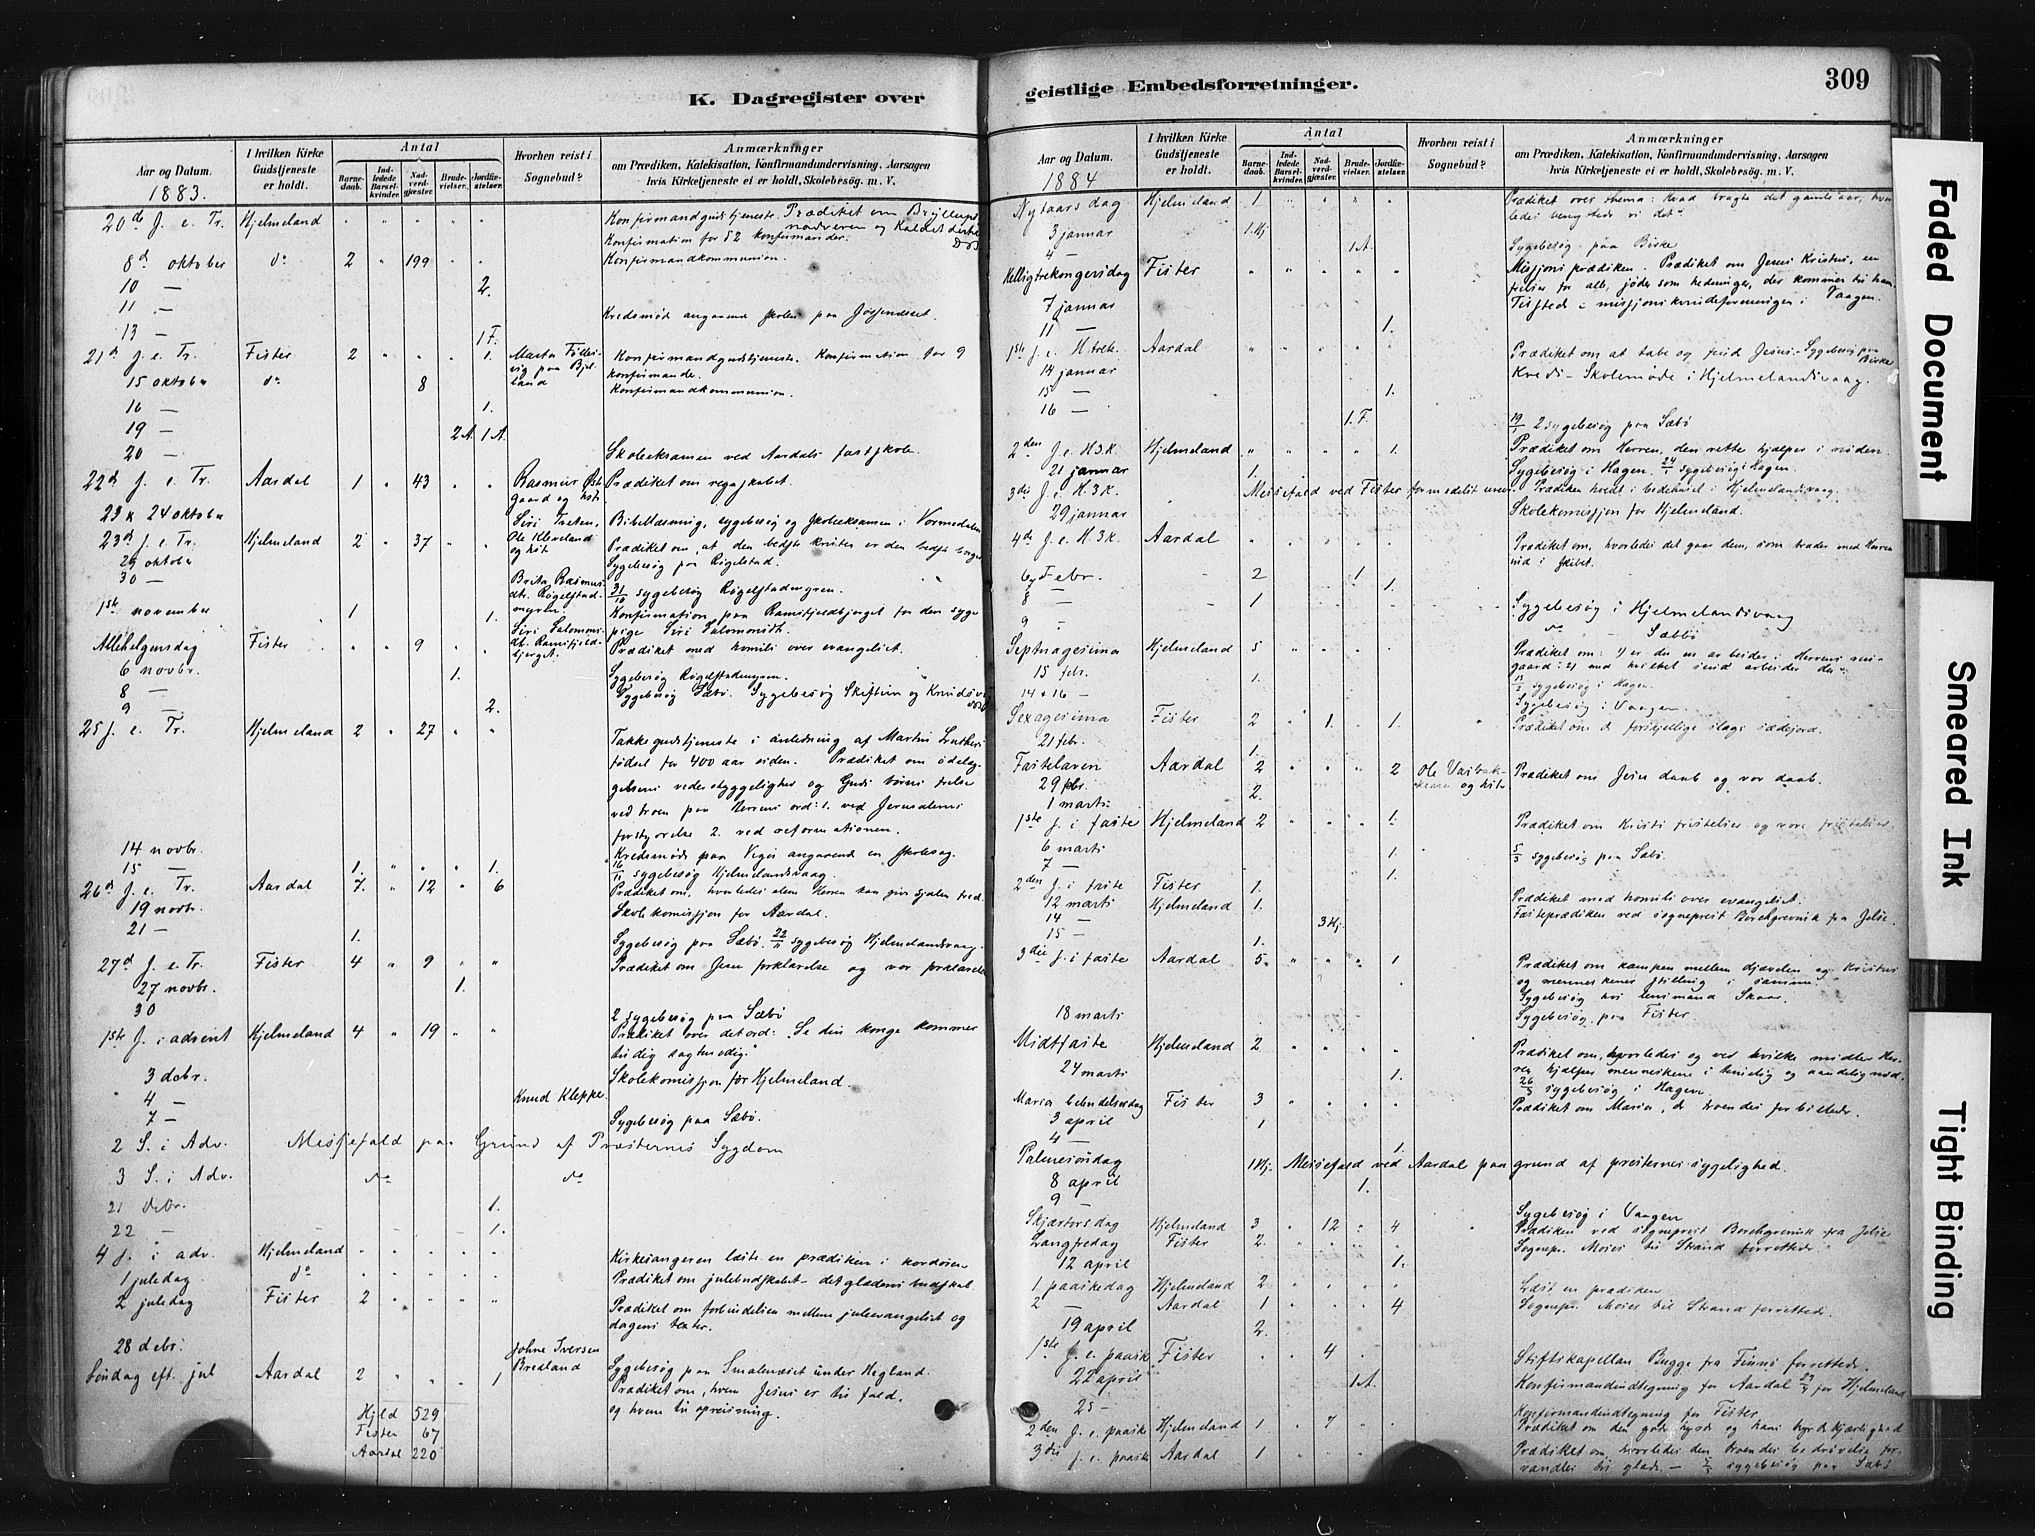 K. Dagregister over
Aar og Datum.
1883.
I hvilken Kirke Gudstjeneste er holdt.
Antal
Barne-daab.
Ind-ledede Barsel-kvinder.
Nad-verd-gjæster.
Brude-vielser.
Jordfæ-stelser.
Hvorhen reist i Sognebud?
Anmærkninger
om Prædiken, Katekisation, Konfirmandundervisning, Aarsagen
hvis Kirketjeneste ei er holdt, Skolebesøg. m. V.
20de J. e. Tr. Hjelmeland Konfirmandgudstjeneste. Prædiket om Bryllups
Konfirmation for 52 konfirmander.
8d oktober do 2 " 199 Konfirmandkommunion.
10 — 2.
11 — Kredsmøde angaaende skolen paa Jøsendset.
13 — 1 F.
21d J. e. Tr. Fister 2 1. Konfirmandgudstjeneste. Konfirmation for 9
konfirmander.
15 oktober do 8 Konfirmandkommunion.
16 — 1.
19 — 2 A. 1 A.
20 — Skoleeksamen ved Aardals fastskole.
22d J. e. Tr. Aardal 1 " 43 Rasmus Øst-
gaard og hst Prædiket om regnskabet.
23 & 24 oktober Siri Træten. Bibellæsning, sygebesøg og skoleeksamen i Vormedalen
23d J. e. Tr. Hjelmeland 2 " 37 Ole Kleveland
og hst Prædiket om, at den bedste kristen er den bedste borger
29 oktober Sygebesøg paa Røgelstad.
30 — Brita Rasmus-
dtr. Røgelstad-
myren. 31/10 sygebesøg Røgelstadmyren.
1ste november 1 1. Konfirmation paa Ramsfjeldbjerget for den syge
pige Siri Salomonsdt.
Allehelgensdag Fister 9 Siri Salomons-
dt. Ramsfjeld-
bjerget. Prædiket med homili over evangeliet.
6 novbr. 1. Sygebesøg Røgelstadmyren.
8 — Sygebesøg Sæbø. Sygebesøg Skiftun og Knudsv
9 — 2.
25 J. e. Tr. Hjelmeland 2 " 27 Takkegudstjeneste i anledning af Martin Luthers
fødsel for 400 aar siden. Prædiket om ødelæg-
gelsens vederstyggelighed og Guds børns frelse
ved troen paa Herrens ord: 1. ved Jerusalems
forstyrrelse 2. ved reformationen.
14 novbr. Kredsmøde paa Viga angaaende en skolesag.
15 — 1. 1. 16/11 sygebesøg Hjelmelandsvaag.
26d J. e. Tr. Aardal 7. " 12 " 6 Prædiket om, hvorledes alene Herren kan give sjælen fred.
19 novbr. Skolekomisjon for Aardal.
21 — 1. Sygebesøg paa Sæbø. 22/11 sygebesøg Hjelmelandsvaag.
27d J. e. Tr. Fister 4 " 9 Prædiket om Jesu forklarelse og vor forklarelse
27 novbr. 1.
30 2 sygebesøg paa Sæbø
1ste J. i advent Hjelmeland 4 " 19 Prædiket over det ord: "Se din konge kommer
til dig sagtmodig."
3 debr. Skolekomisjon for Hjelmeland.
4 — Knud Kleppe.
7 — Sygebesøg paa Sæbø.
2 S. i Adv. Messefald paa Grund af Præsternes Sygdom
3 S. i Adv. do do
21 debr. 1.
22 — 1.
4 J. i adv. Hjelmeland Kirkesangeren læste en prædiken i kordøren
1 juledag do Prædiket om julebudskabet – det glædens budskab
2 juledag Fister 2 Prædiket om forbindelsen mellem juleevangeliet og
dagens tekster.
28 debr. Johne Iversen
Bredland
Søndag eft. jul Aardal 2 1 Sygebesøg paa Smalenæset under Hegland.
Prædiket om, hvem Jesus er til fald,
og hvem til opreisning.
Hjld 529
Fister 67
Aardal 220
geistlige Embedsforretninger.
309
Aar og Datum.
1884
I hvilken Kirke Gudstjeneste er holdt.
Antal
Barne-daab.
Ind-ledede Barsel-kvinder.
Nad-verd-gjæster.
Brude-vielser.
Jordfæ-stelser.
Hvorhen reist i Sognebud?
Anmærkninger
om Prædiken, Katekisation, Konfirmandundervisning, Aarsagen
hvis Kirketjeneste ei er holdt, Skolebesøg. m. V.
Nytaarsdag Hjelmeland 1. Prædiket over thema: Hvad bragte det gamle aar, hvor-
ledes benyttede vi det"
3 januar 1. Hj.
4 — 1 A. Sygebesøg paa Birke
Helligtrekongersdag Fister Missionsprædiken. Prædiket om Jesus Kristus, en
frelser for alle, jøder som hedninger, der kommer til ham.
7 januar Tilsted i missionskvindeforeningen i Vaagen.
11 — 1.
1ste J. e. H. trek. Aardal Prædiket om at tabe og finde Jesus. – Sygebesøg paa Birke
14 januar Kreds-Skolemøde i Hjelmelandsvaag.
15 — 1.
16 — 1. F. 19/1 2 sygebesøg paa Sæbø
2den J. e. H. 3. K. Hjelmeland 1. Prædiket om Herren, den rette hjælper i nøden.
21 januar 1. Sygebesøg i Hagen. 24/1 sygebesøg i Hagen.
3die J. e. H. 3 K. Messefald ved Fister formedelst uveir. Prædiken holdt i bedehuset i Hjelmelandsvaag.
29 januar Skolekomisjon for Hjelmeland.
4de J. e. H. 3 K. Aardal Prædiket om, hvorledes det gaar dem, som træder med Herren
ind i skibet.
6 Febr. 2 1
8 — 1 1. Sygebesøg i Hjelmelandsvaag
9 — do Sæbø
Septuagesima Hjelmeland 5 Prædiket om: 1) er du en arbeider i Herrens vin-
gaard: 2) med hvilket sind arbeider du"
15 febr. 1. sygebesøg i Hagen.
14 & 16 — Sygebesøg i Vaagen.
Sexagesima Fister 2 " 1. 1. Prædiket om de forskjellige slags sædejord.
21 febr. 1.
Fastelaven Aardal 2 2 Prædiket om Jesu daab og vor daab.
29 febr. 2.
1 marts
1ste J. i faste Hjelmeland 2 1. Prædiket om Kristi fristelser og vore fristelser.
6 marts 1. 5/3 sygebesøg paa Sæbø.
7 — 1.
2den J. i faste Fister 1. Prædiket med homili over evangeliet.
12 marts Hjelmeland 1. Fasteprædiken ved sognepræst Borchgrevink fra Jelse.
14 — 3 Hj.
15 — 1.
3die J. i faste Aardal 5. 1 Prædiket om kampen mellem djævelen og Kristus
og menneskenes stilling i samme.
Sygebesøg hos lensmand Skaar.
18 marts Sygebesøg paa Fister.
Midtfaste Hjelmeland 2 Prædiket om, hvorledes og ved hvilke midler Her-
24 marts 1. ren hjælper menneskene i timelig og aandelig nød.
26/3 sygebesøg i Hagen.
Mariæ bebudelsesdag Fister 3 Prædiket om Maria, de troendes forbillede.
3 april 1
4 — 1.
Palmesøndag 1 Hj. Messefald ved Aardal paa grund af presternes sygelighed.
8 april 1.
9 — Sygebesøg i Vaagen
Skjærtorsdag Hjelmeland 3 " 12 " 4 Prædiken ved sognepræst Borchgrevink fra Jelse
Langfredag Fister 2. Sognepr. Moses til Strand forrettede.
12 april 1.
1 paaskedag Hjelmeland 2 Læst en prædiken
2 — Aardal 1 4 Sognepr. Moses til Strand forrettede.
19 april 2.
1ste J. e. paaske Fister 4 Stiftskapellan Bugge fra Finnø forrettede.
22 april 1 A. Konfirmandindtegning for Aardal for Hjelmeland
25 — Konfirmandindtegning for Fister
2den J. e. paaske Hjelmeland 1 " 7 Prædiket om den gode hyrde og hans hyrdekjærlighed
3die J. e. paaske Aardal 1 Prædiket om, hvorledes den troendes bedrøvelse for-
vandles til glæde. – sygebesøg paa Sæbø
Faded Document
Smeared Ink
Tight Binding